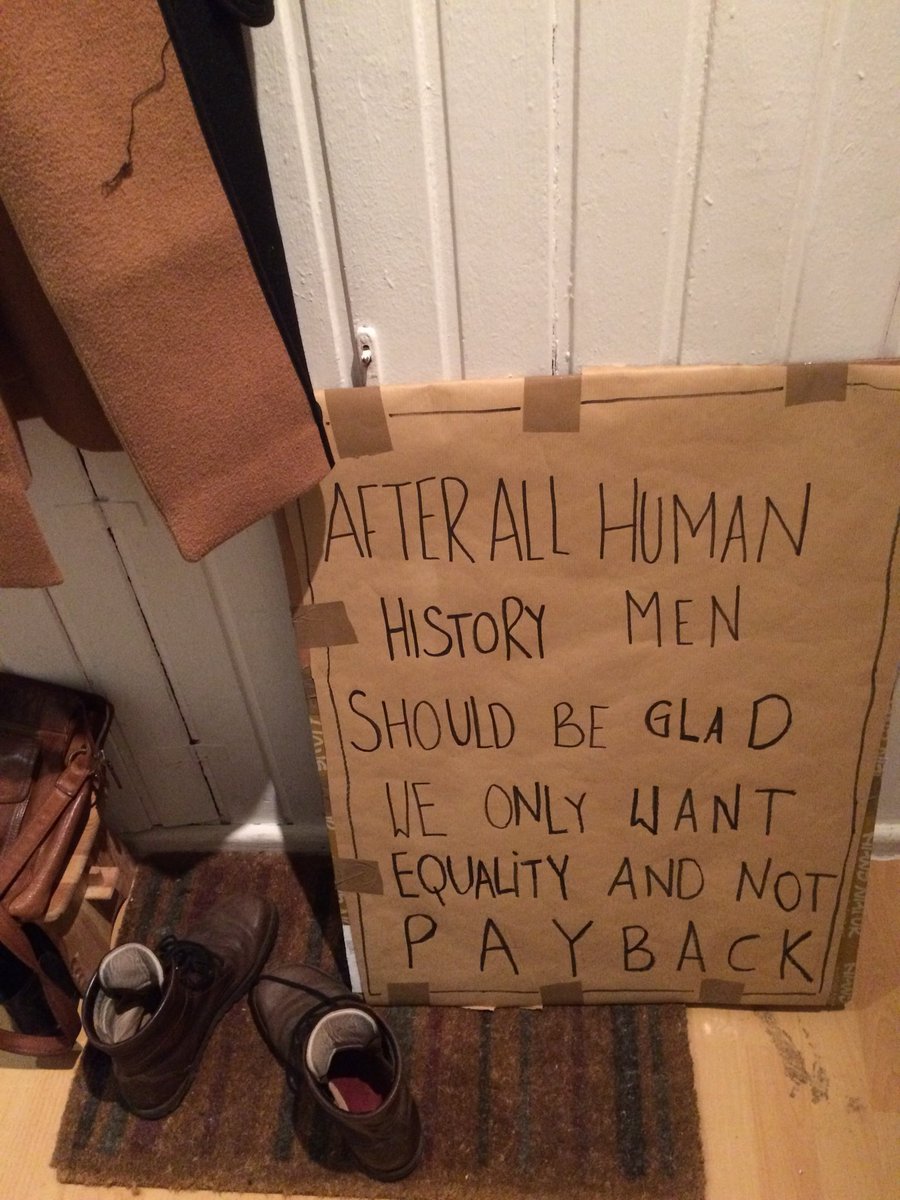 AFTER ALL HUMAN
HISTORY MEN
SHOULD BE GLAD
WE ONLY WANT
EQUALITY AND NOT
PAYBACK